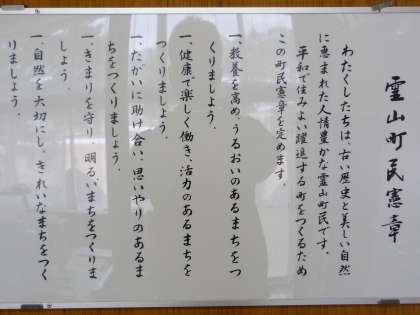 霊山町民憲章
わたくしたちは、古い歴史と美しい自然
に恵まれた人情豊かな霊山町民です。
平和で住みよい躍進する町をつくるため
この町民憲章を定めます。
一、教養を高め、うるおいのあるまちをつ
くりましょう。
一、健康で楽しく働き、活力のあるまちを
つくりましょう。
一、たがいに助け合い、思いやりのあるま
ちをつくりましょう。
一、きまりを守り、明るいまちをつくりま
しょう。
一、自然を大切にし、きれいなまちをつく
りましょう。